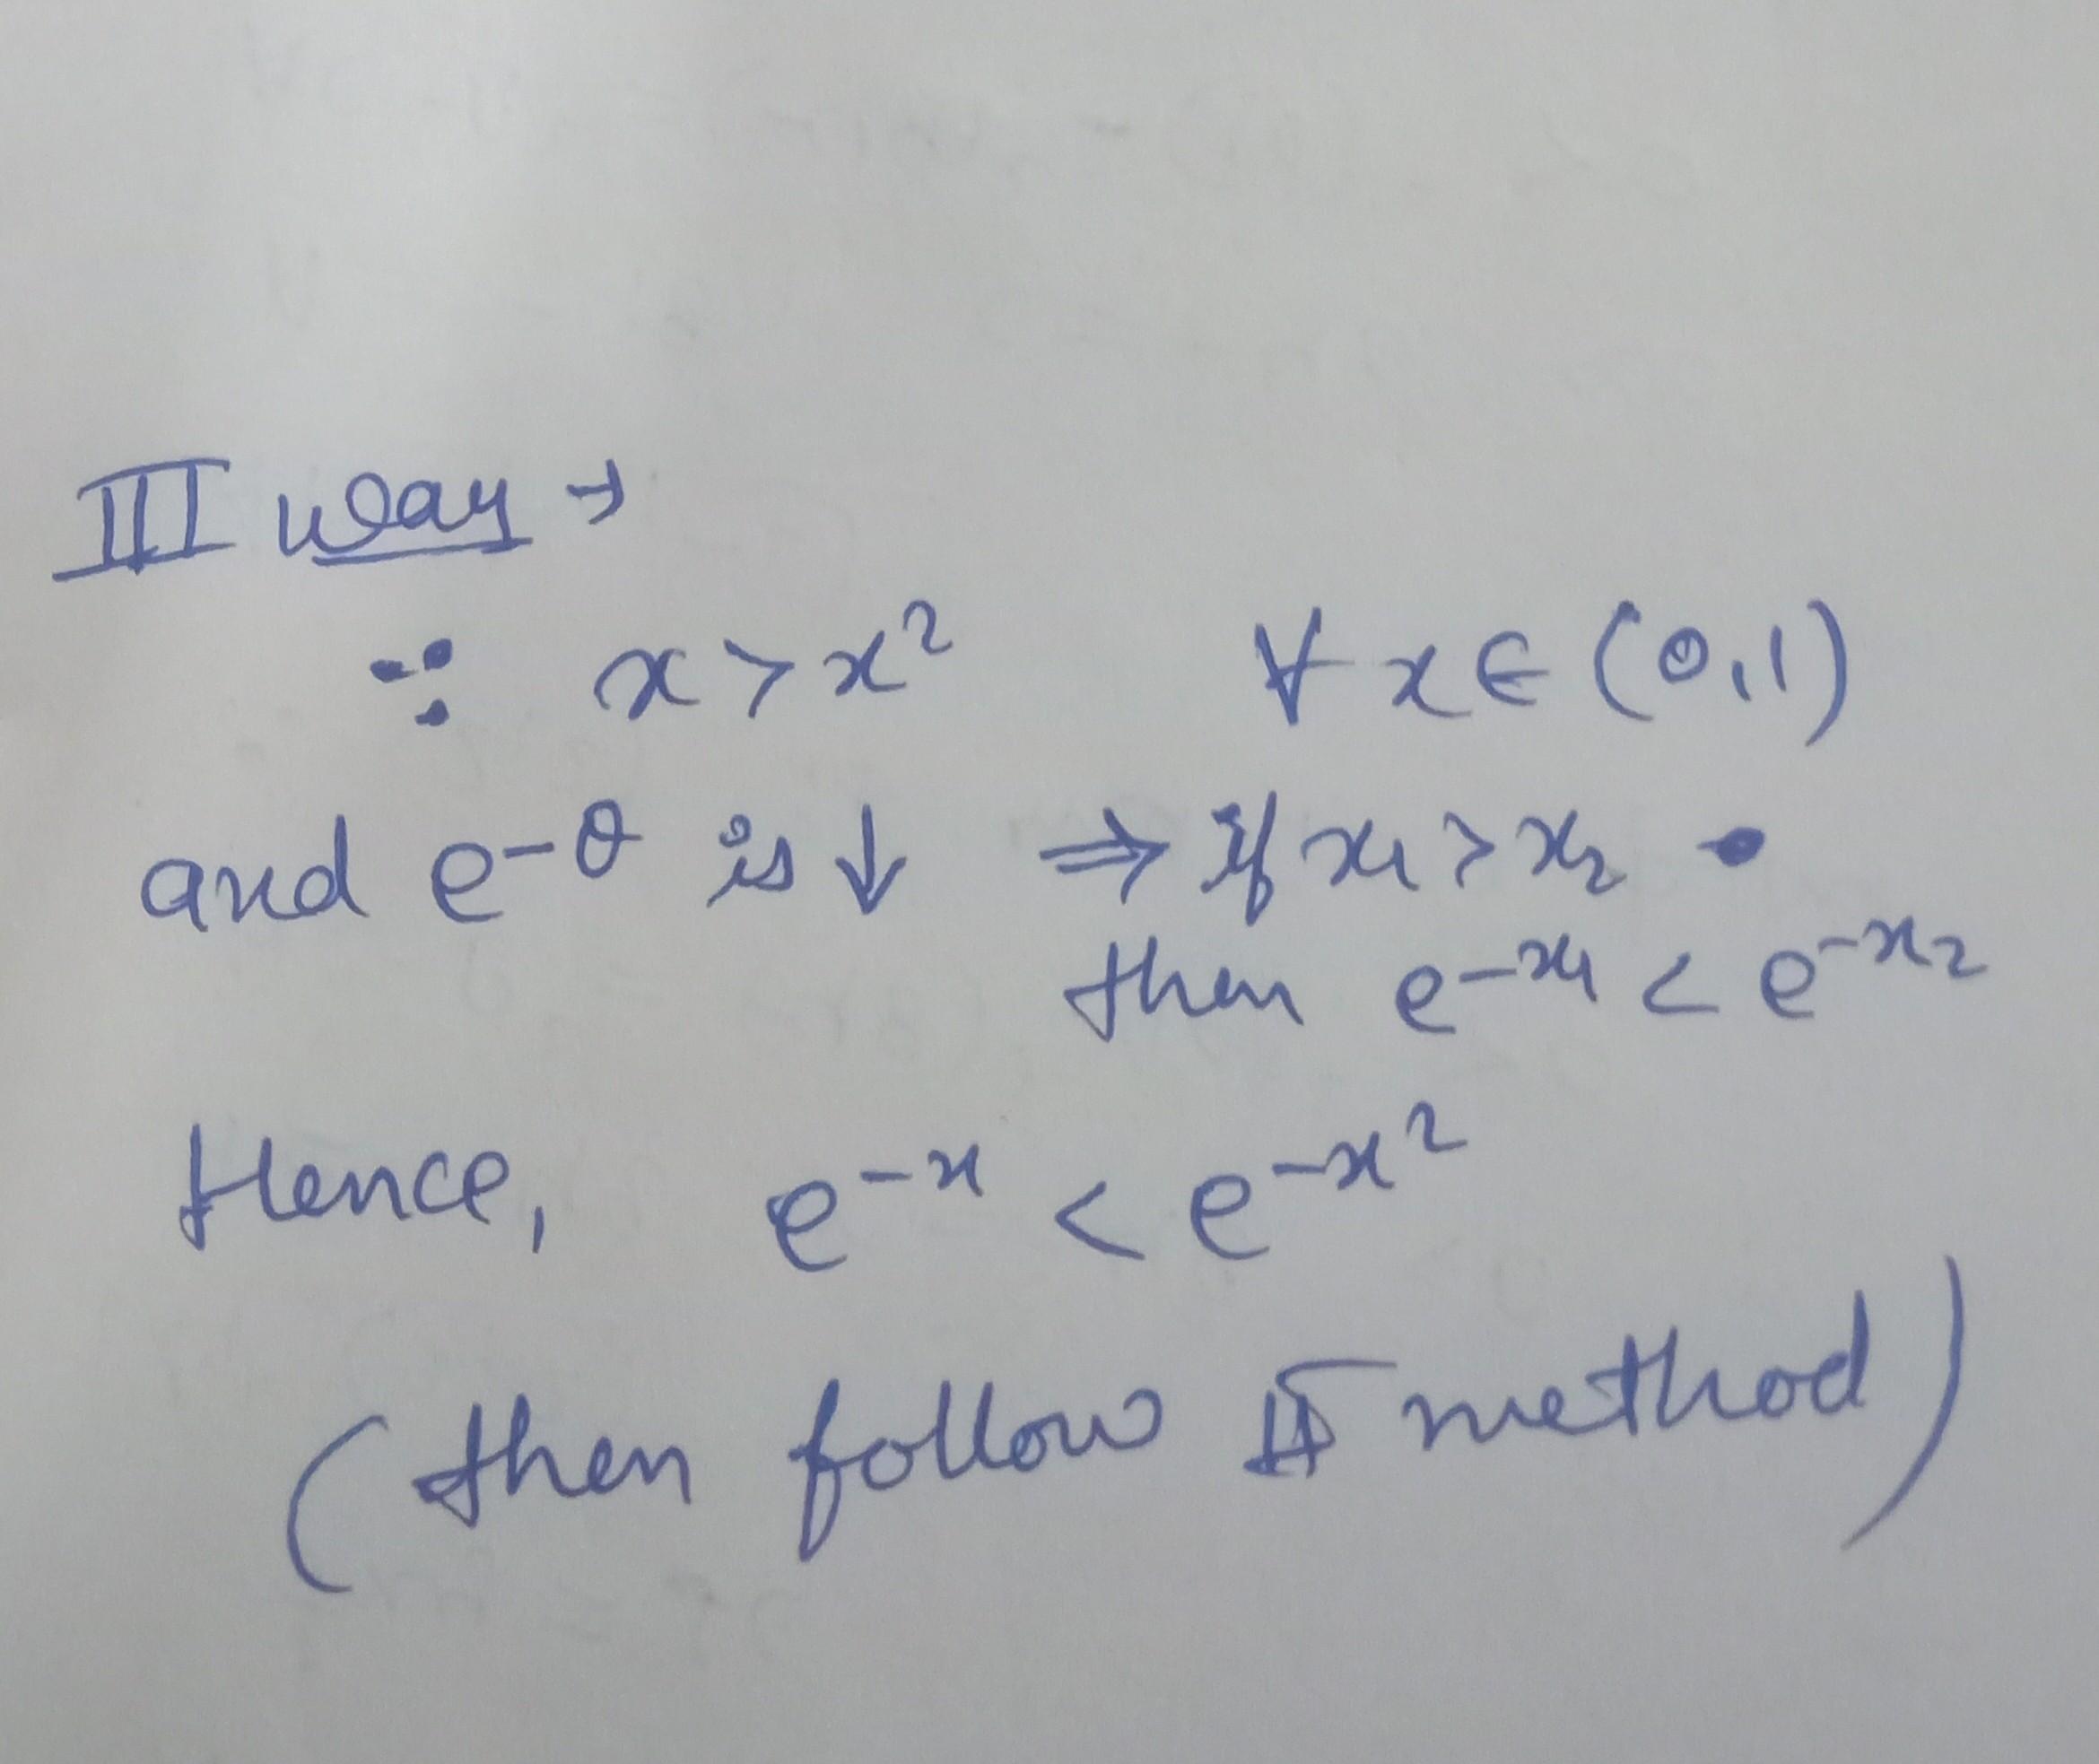 III way →
∵ x > x² ∀ x ∈ (0,1)
and e^-θ is ↓ ⇒ if x₁ > x₂
then e^-x₁ < e^-x₂
Hence, e^-x < e^-x²
(then follow II method)